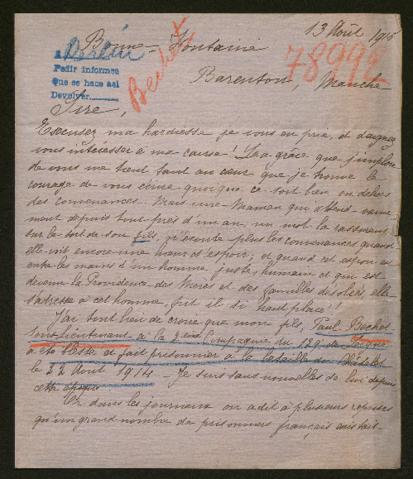 13 Août 1915
Bonne-Fontaine
78992
Barenton, Manche
Berlin
Pedir informes
Que se hace asi
Devolver
Bechet
Sire,
Excusez ma hardiesse je vous en prie, et daignez
vous intéresser à ma cause! La grâce que j'implore
de vous me tient tant au cœur que je trouve le
courage de vous écrire quoique ce soit bien en dehors
des convenances. Mais une Maman qui attend vaine-
ment depuis tout près d'un an, un mot la rassurant
sur le sort de son fils, n'écoute plus les convenances quand
elle voit encore une lueur d'espoir, et quand cet espoir est
entre les mains d'un homme juste, humain et qui est
devenu la Providence des Mères et des familles désolées elle
s'adresse à cet homme, fut il si haut placé!
J'ai tout lieu de croire que mon fils, Paul Bechet
sous-lieutenant à la 2ème Compagnie du
a été blessé et fait prisonnier à la bataille de
le 22 Août 1914. Je suis sans nouvelles de lui depuis
cette époque.
Or dans les journaux on a dit à plusieurs reprises
qu'un grand nombre de prisonniers français